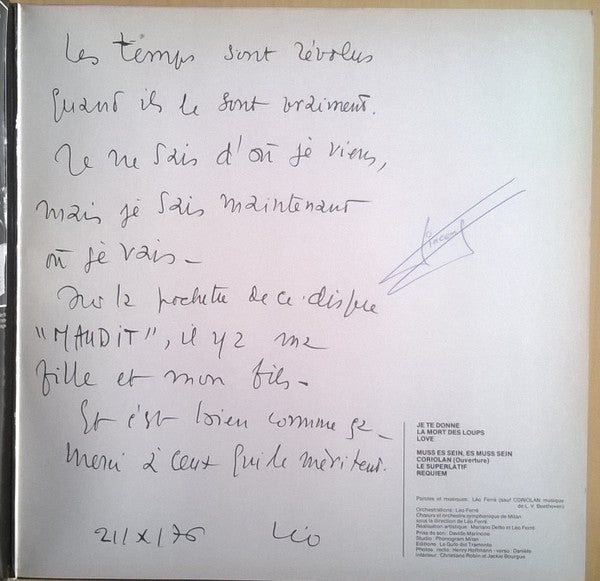 Les temps sont révolus
quand ils le sont vraiment.
Je ne sais d'où je viens,
mais je sais maintenant
où je vais -
Sur la pochette de ce disque
"MAUDIT", il y a ma
fille et mon fils -
Et c'est bien comme ça -
Merci à ceux qui le méritent.
21/X/76 Léo
JE TE DONNE
LA MORT DES LOUPS
LOVE
MUSS ES SEIN, ES MUSS SEIN
CORIOLAN (Ouverture)
LE SUPERLATIF
REQUIEM
Paroles et musiques: Léo Ferré (sauf CORIOLAN: musique
de L. V. Beethoven)
Orchestrations: Léo Ferré
Chœurs et orchestre symphonique de Milan
sous la direction de Léo Ferré
Réalisation artistique: Mariano Detto et Léo Ferré
Prise de son: Davide Marinone
Studio: Phonogram Milan
Editions: La Gufo del Tramonto
Photos: recto: Henry Hoffmann - verso: Danièle
intérieur: Christiane Robin et Jackie Bourgue